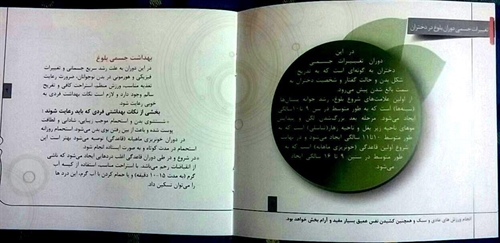 تغییرات جسمی دوران بلوغ در دختران
در این
دوران تغییرات جسمانی
دختران به گونه‌ای است که به تدریج
شکل بدن و حالت گفتار و شخصیت دختران به
سمت بالغ شدن پیش می‌رود.
از اولین علامت‌های شروع بلوغ، رشد جوانه پستان‌ها
است که به طور متوسط در سن
ایجاد می‌شود. مرحله بعد بزرگ‌شدن لگن و پیدایش
موهای ناحیه زیر بغل و ناحیه زهار است که
سالگی ایجاد می‌شود و
شروع اولین قاعدگی (خونریزی ماهانه) است که به
طور متوسط در سنین ۹ تا ۱۶ سالگی ایجاد
می‌شود.
انجام ورزش های عادی و سبک و همچنین کشیدن نفس عمیق بسیار مفید و آرام بخش خواهد بود.
بهداشت جسمی بلوغ
در این دوران به علت رشد سریع جسمانی و تغییرات
فیزیکی و هورمونی در بدن نوجوانان، ضرورت رعایت
تغذیه مناسب، ورزش منظم، استراحت کافی و تفریح
سالم وجود دارد و لازم است نکات بهداشت فردی به
خوبی رعایت شود.
بخشی از نکات بهداشتی فردی که باید رعایت شوند:
شستشوی بدن و استحمام موجب زیبایی، شادابی و لطافت
پوست شده و باعث از بین رفتن بوی بدن می‌شود. استحمام روزانه
در دوران خونریزی ماهیانه (قاعدگی) توصیه می‌شود بهتر است این
استحمام در مدت کوتاه و به صورت ایستاده انجام شود.
در شروع و در طی دوران قاعدگی اغلب دردهایی ایجاد می‌شود که ناشی
از انقباضات رحم می‌باشد. با استراحت مناسب، استفاده از کیسه آب
گرم (به مدت ۱۵-۱۰ دقیقه) و یا حمام کردن با آب گرم، این درد ها
را می‌توان تسکین داد.